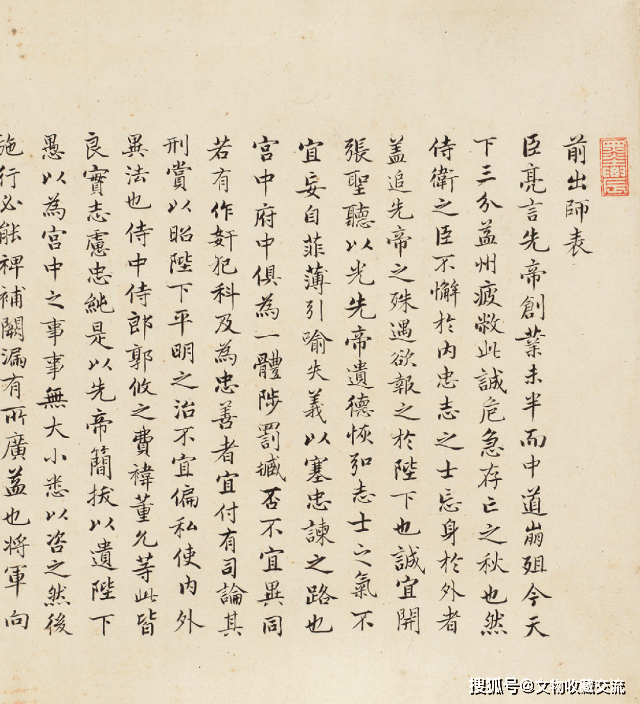 前出師表
臣亮言先帝創業未半而中道崩殂今天
下三分益州疲敝此誠危急存亡之秋也然
侍衛之臣不懈於内忠志之士忘身於外者
盖追先帝之殊遇欲報之於陛下也誠宜開
張聖聽以光先帝遺德恢弘志士之氣不
宜妄自菲薄引喻失義以塞忠諫之路也
宫中府中俱為一體陟罰臧否不宜異同
若有作奸犯科及為忠善者宜付有司論其
刑賞以昭陛下平明之治不宜偏私使内外
異法也侍中侍郎郭攸之費禕董允等此皆
良實志慮忠純是以先帝簡拔以遺陛下
愚以為宫中之事事無大小悉以咨之然後
施行必能裨補闕漏有所廣益也将軍向
搜狐号@文物收藏交流